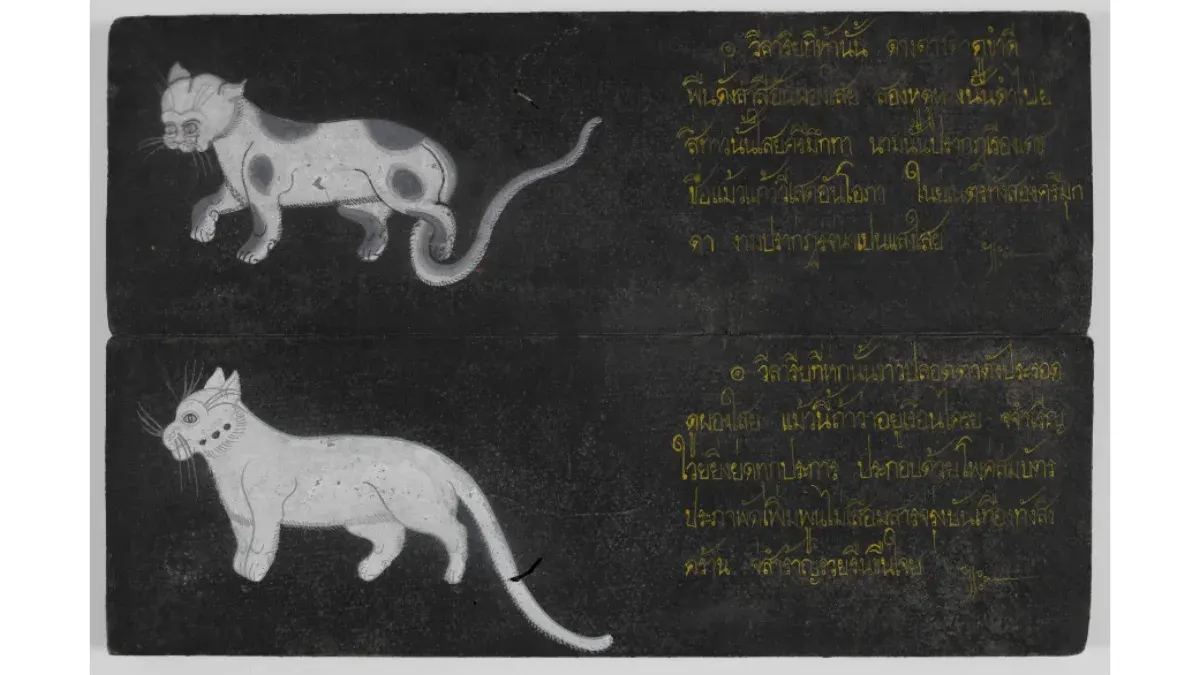 ๏ วิลาริยที่ห้านั้น ด่างดาง ดูขำดี
พื้นดั่งสำลีอันผ่องใสย สองหูหางนั้นดำไปย
สี่ท้าวนั้นใสย นามนั้นปรากฏเรืองเดช
ชื่อแม้วแก้ววิเสดอันโอภา ในยเนตรทังสองศรีมุก
ดา งามปรากฏ เปนแสงใสย
๏ วิลาริยที่หกนั้นขาวปลอดตาดั่งประรอด
ดูผ่องใสย แม้วนี้ถ้าว่าอยู่เรือนใดยย จจำเริญ
ใวยยิ่งยดทุกประการ ประกอบด้วยโพคสมบัตร
ประภาพัดเพิ่มพูนไม่เสื่อมสาร
คร้าน จสำราญรวยรื่นชื่นใจย